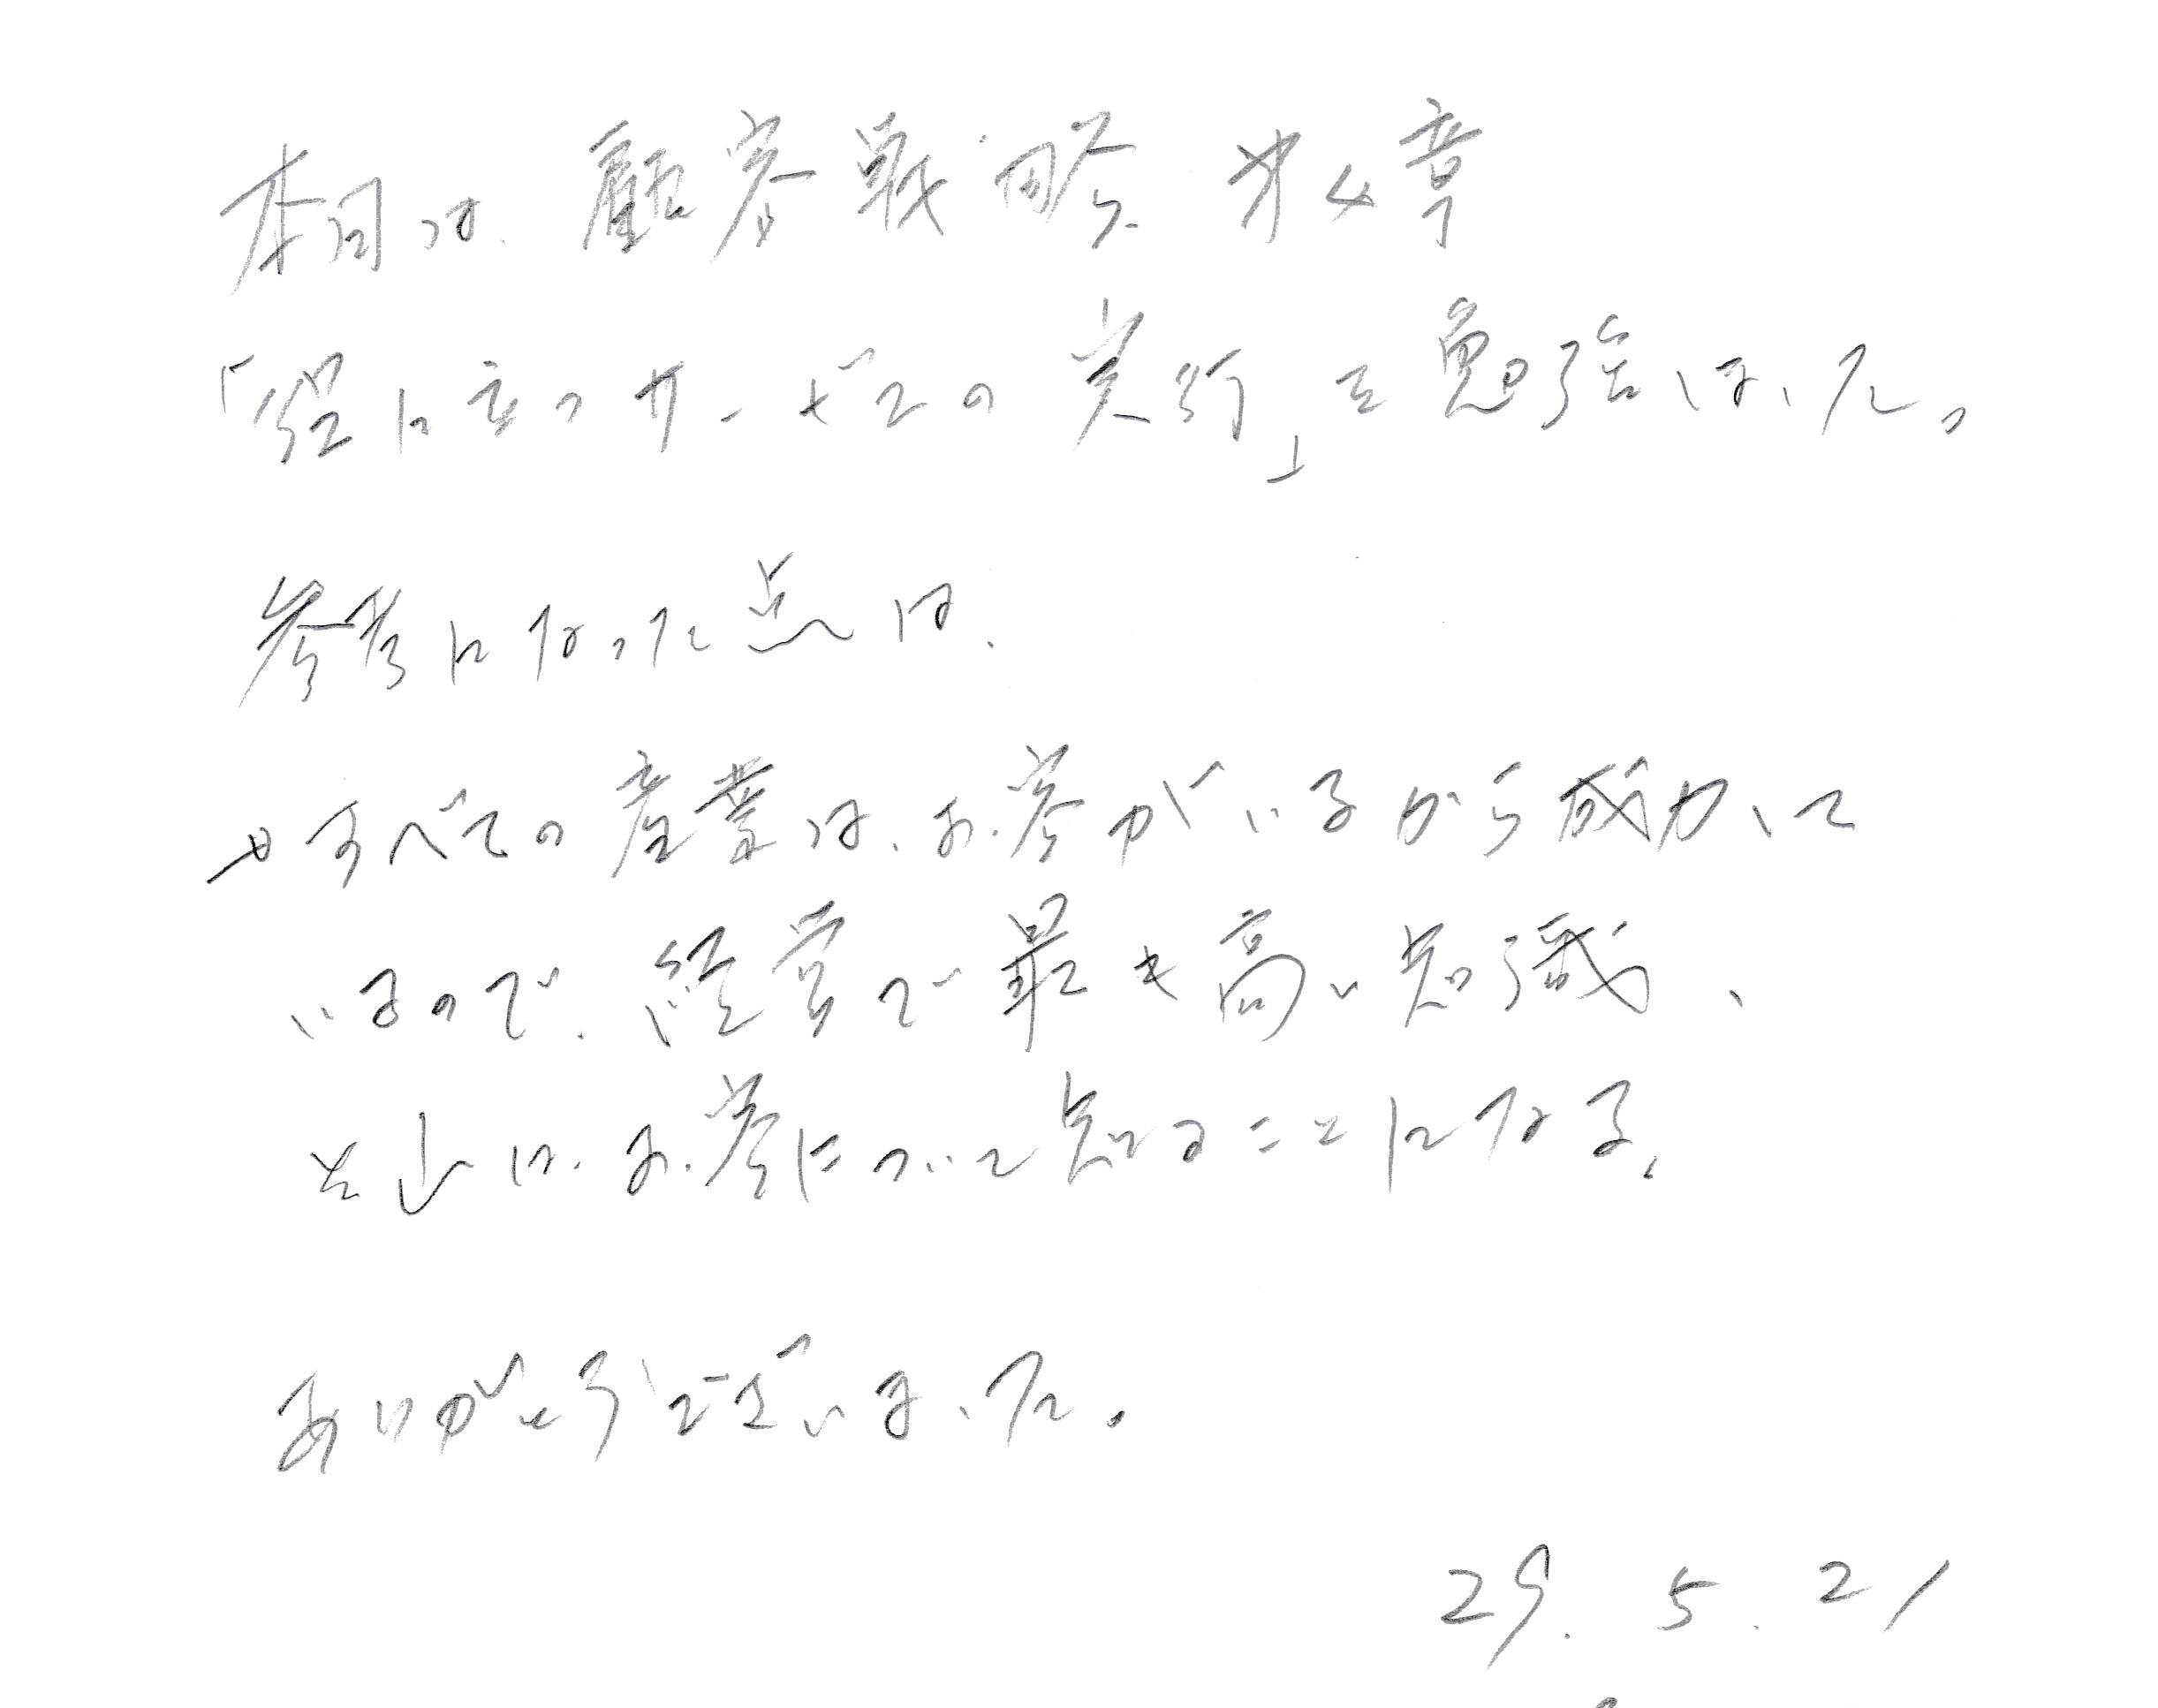 本日は、顧客戦略 第4章
「役に立つサービスの実行」を勉強しました。
参考になった点は、
→すべての産業は、お客がいるから成立して
いるので、経営で最も高い知識、
お客について知ることになる。
ありがとうございました。
29. 5. 21